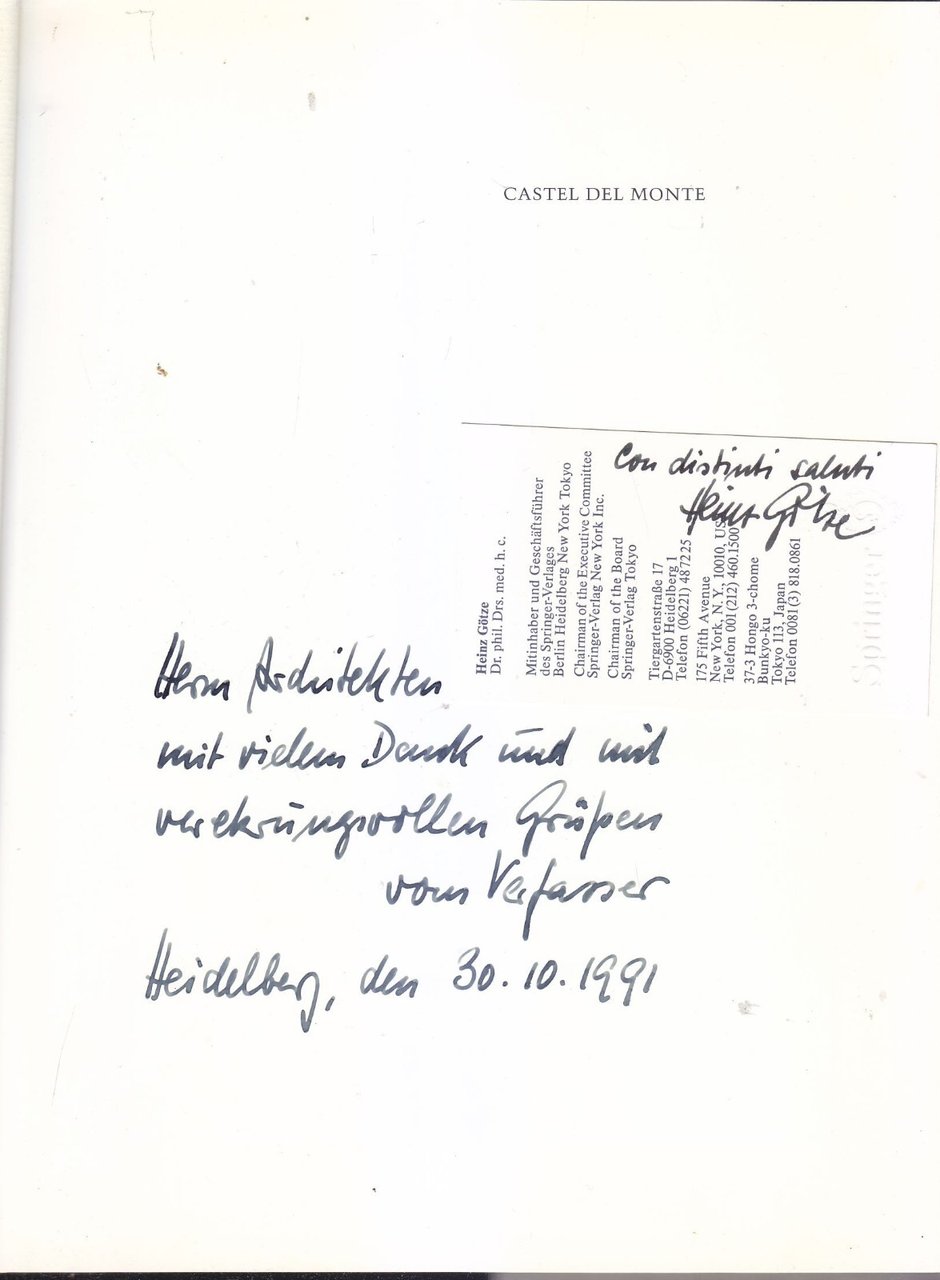 CASTEL DEL MONTE
Con distinti saluti
Heinz Götze
Heinz Götze
Dr. phil. Drs. med. h. c.
Mitinhaber und Geschäftsführer
des Springer-Verlages
Berlin Heidelberg New York Tokyo
Chairman of the Executive Committee
Springer-Verlag New York Inc.
Chairman of the Board
Springer-Verlag Tokyo
Tiergartenstraße 17
D-6900 Heidelberg 1
Telefon (06221) 487225
175 Fifth Avenue
New York, N. Y., 10010, US
Telefon 001 (212) 460.1500
37-3 Hongo 3-chome
Bunkyo-ku
Tokyo 113, Japan
Telefon 0081 (3) 818.0861
Springer
Herrn Architekten
mit vielem Dank und mit
verehrungsvollen Grüßen
vom Verfasser
Heidelberg, den 30.10.1991